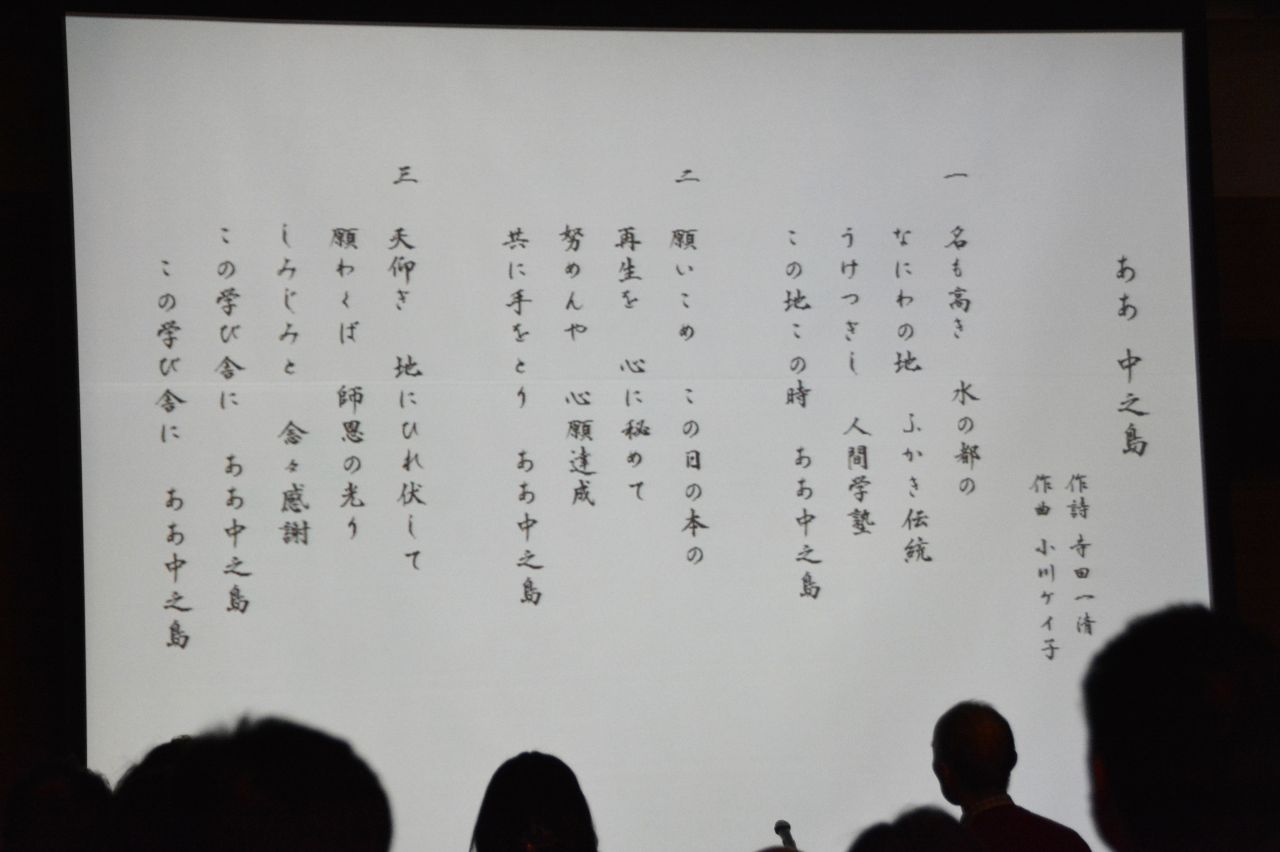 ああ 中之島
作詩 寺田一清
作曲 小川ケイ子
一 名も高き 水の都の
なにわの地 ふかき伝統
うけつぎし 人間学塾
この地この時 ああ中之島
二 願いこめ この日の本の
再生を 心に秘めて
努めんや 心願達成
共に手をとり ああ中之島
三 天仰ぎ 地にひれ伏して
願わくば 師恩の光り
しみじみと 念々感謝
この学び舎に ああ中之島
この学び舎に ああ中之島